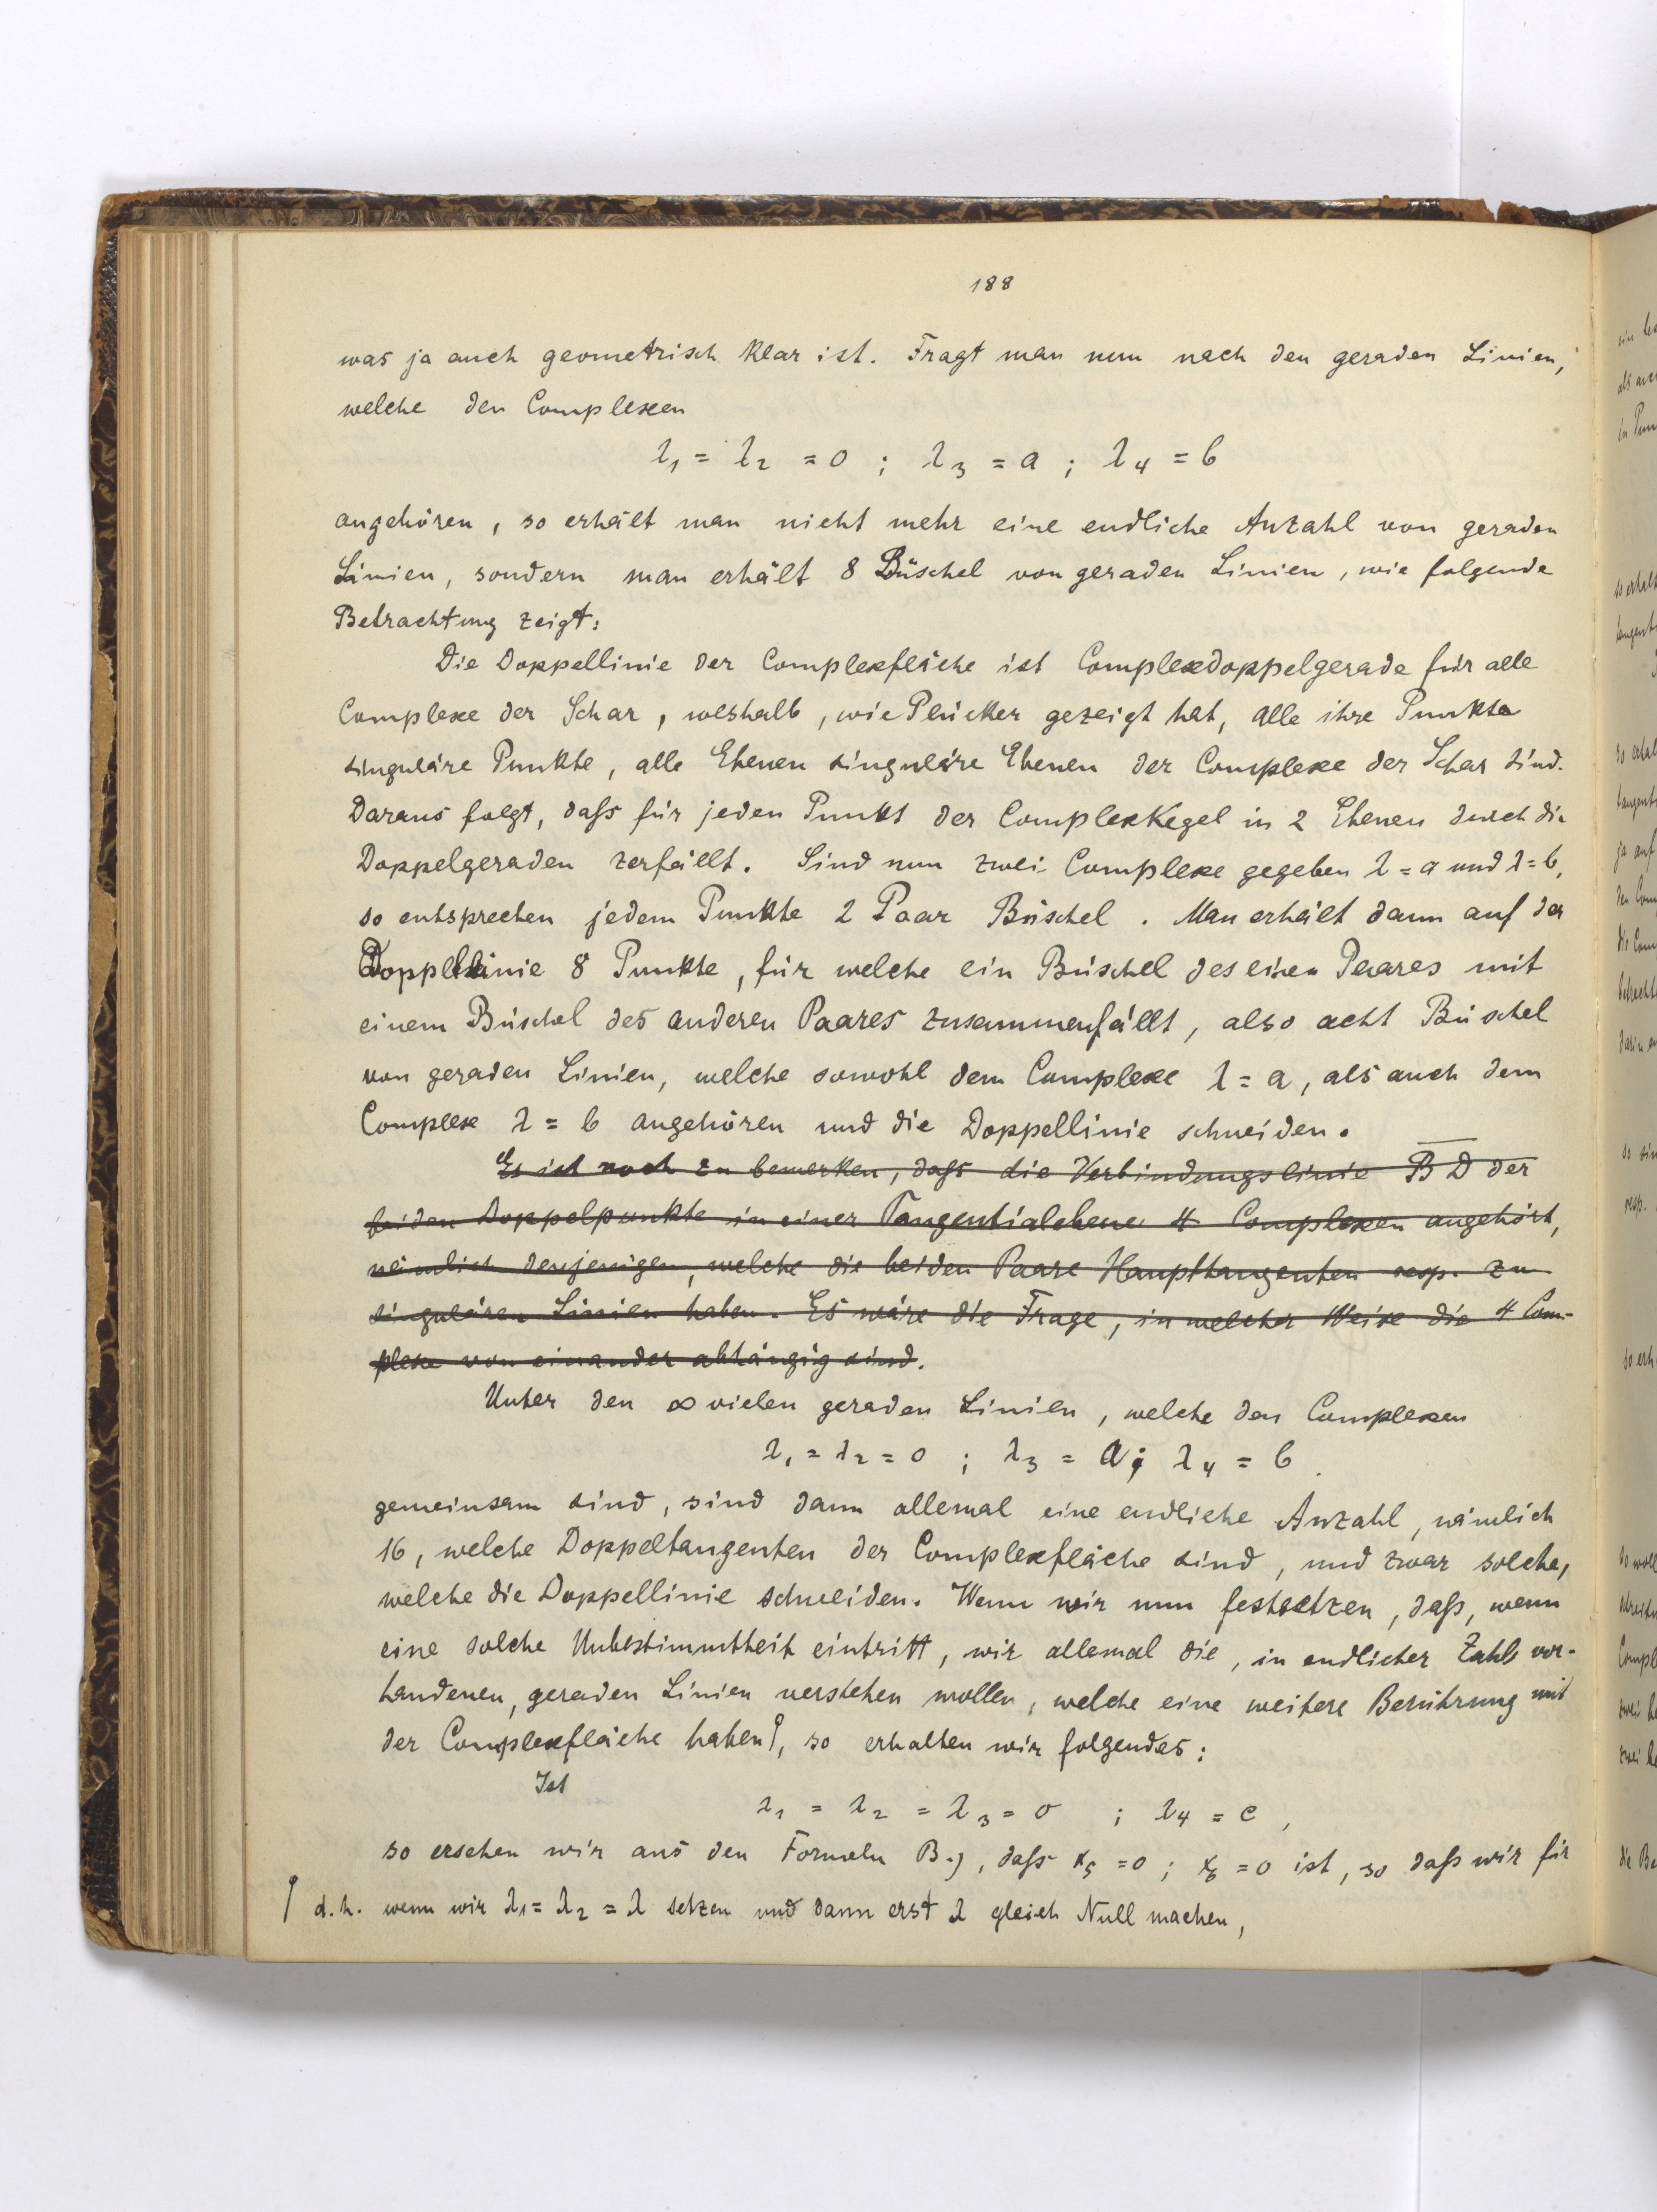 188
was ja auch geometrisch klar ist. Fragt man nun nach den geraden Linien,
welche den Complexen
λ₁ = λ₂ = 0 ; λ₃ = a ; λ₄ = b
angehören, so erhält man nicht mehr eine endliche Anzahl von geraden
Linien, sondern man erhält 8 Büschel von geraden Linien, wie folgende
Betrachtung zeigt:
Die Doppellinie der Complexfläche ist Complexdoppelgerade für alle
Complexe der Schar, weshalb, wie Plücker gezeigt hat, alle ihre Punkte
singuläre Punkte, alle Ebenen singuläre Ebenen der Complexe der Schar sind.
Daraus folgt, daſs für jeden Punkt der ComplexKegel in 2 Ebenen durch die
Doppelgeraden zerfällt. Sind nun zwei Complexe gegeben λ = a und λ = b,
so entsprechen jedem Punkte 2 Paar Büschel. Man erhält dann auf der
Doppellinie 8 Punkte, für welche ein Büschel des einen Paares mit
einem Büschel des anderen Paares zusammenfällt, also acht Büschel
von geraden Linien, welche sowohl dem Complexe λ = a, als auch dem
Complexe λ = b angehören und die Doppellinie schneiden.
Es ist noch zu bemerken, daſs die Verbindungslinie B D der
beiden Doppelpunkte in einer Tangentialebene 4 Complexen angehört,
nämlich denjenigen, welche die beiden Paare Haupttangenten resp. zu
singulären Linien haben. Es wäre die Frage, in welcher Weise die 4 Com-
plexe von einander abhängig sind.
Unter den ∞ vielen geraden Linien, welche den Complexen
λ₁ = λ₂ = 0 ; λ₃ = a ; λ₄ = b
gemeinsam sind, sind dann allemal eine endliche Anzahl, nämlich
16, welche Doppeltangenten der Complexfläche sind, und zwar solche,
welche die Doppellinie schneiden. Wenn wir nun festsetzen, daſs, wenn
eine solche Unbestimmtheit eintritt, wir allemal die, in endlicher Zahl vor-
handenen, geraden Linien verstehen wollen, welche eine weitere Berührung mit
der Complexfläche haben⌠, so erhalten wir folgendes:
Ist
λ₁ = λ₂ = λ₃ = 0 ; λ₄ = c,
so ersehen wir aus den Formeln B.), daſs x₅ = 0 ; x₆ = 0 ist, so daſs wir für
⌠ d.h. wenn wir λ₁ = λ₂ = λ setzen und dann erst λ gleich Null machen,